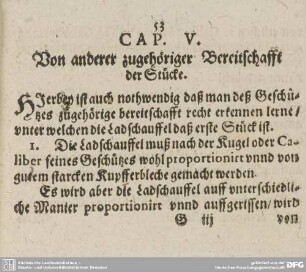 53
CAP. V.
Von anderer zugehöriger Bereitschafft
der Stücke.
HIerbey ist auch nothwendig daß man deß Geschü-
tzes zugehörige bereitschafft recht erkennen lerne/
vnter welchen die Ladschauffel daß erste Stück ist.
1. Die Ladschauffel muß nach der Kugel oder Ca-
liber seines Geschützes wohl proportionirt vnnd von
gutem starcken Kupfferbleche gemacht werden.
Es wird aber die Ladschauffel auff vnterschiedli-
che Manier proportionirt vnnd auffgerissen/ wird
G iij
von